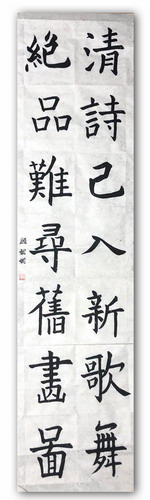 清詩已入新歌舞
絕品難尋舊畫圖